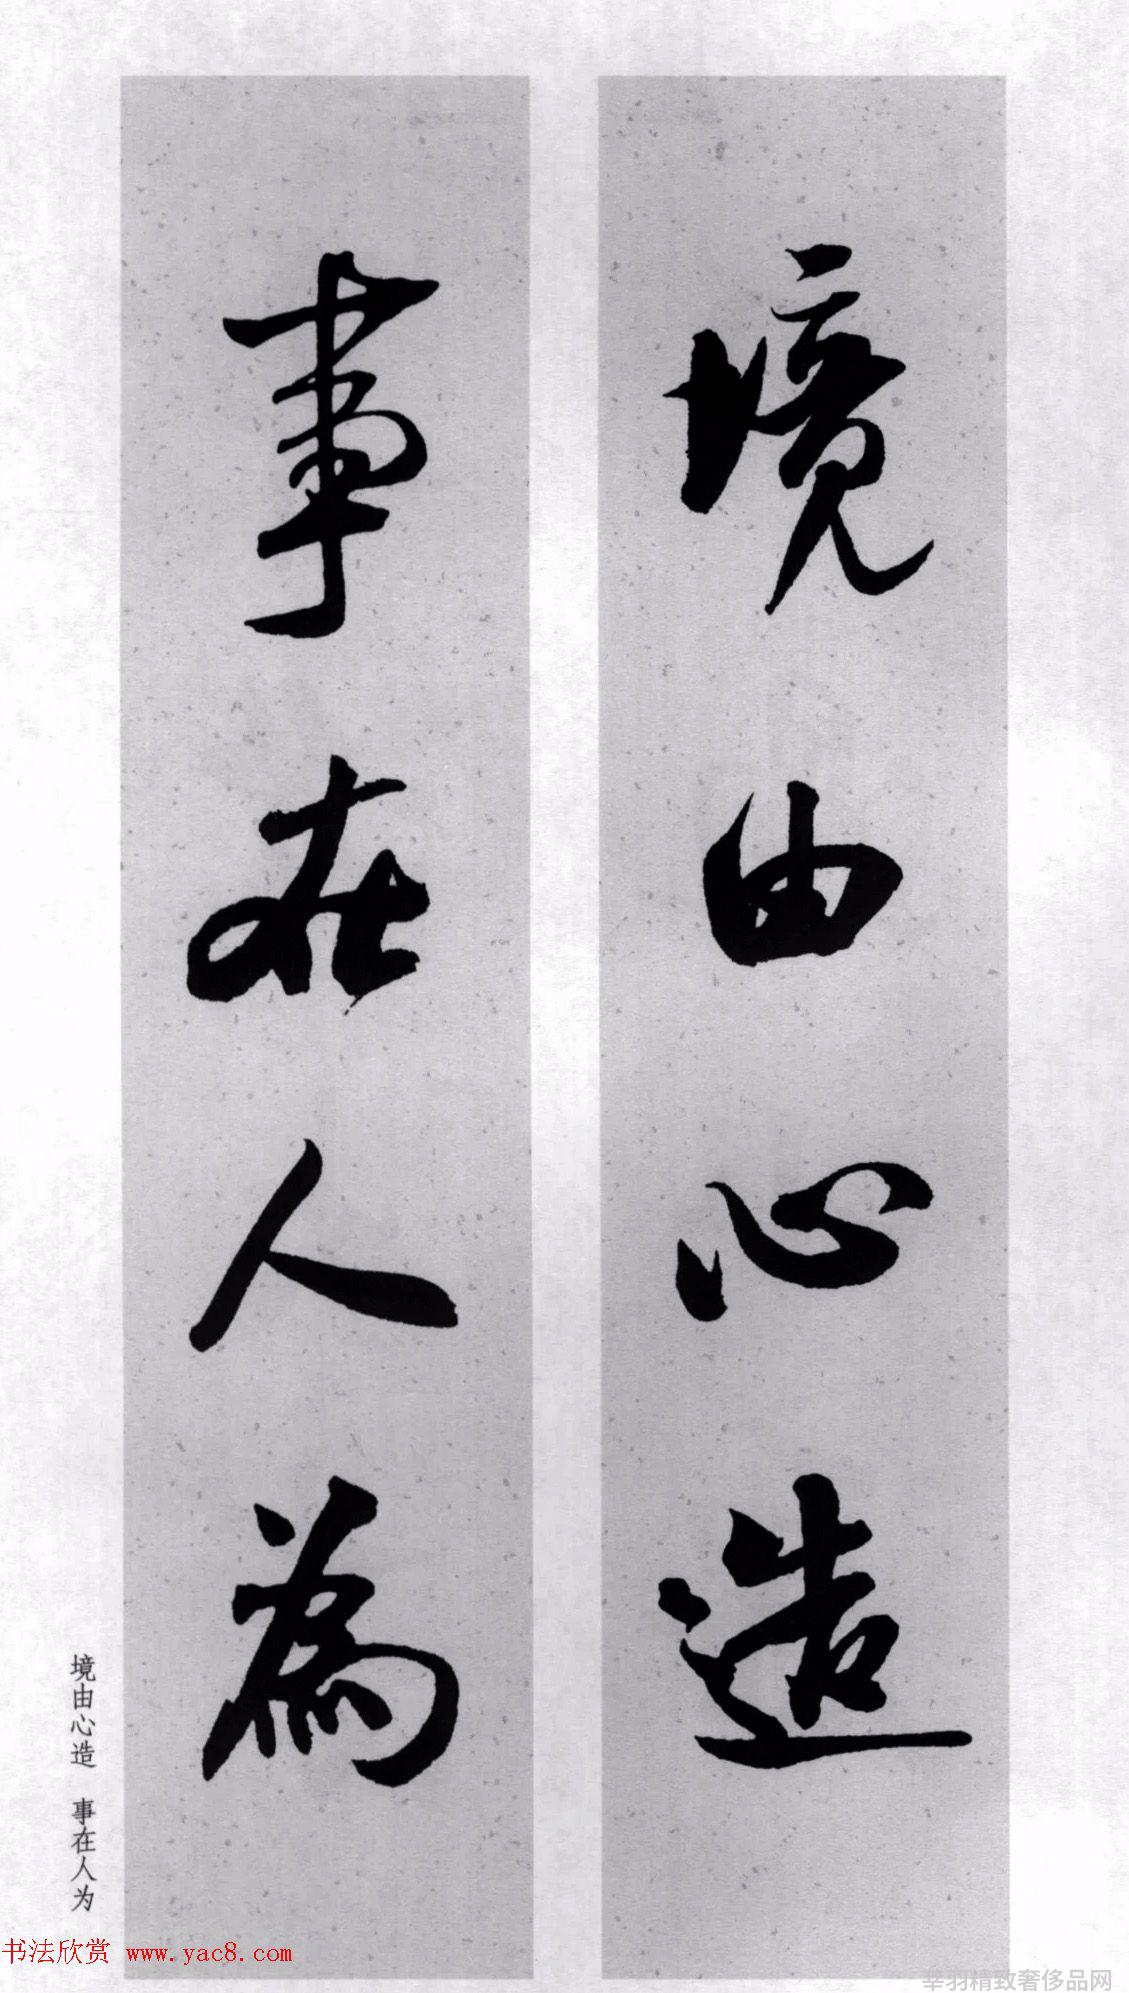 境由心造
事在人為
境由心造 事在人为
书法欣赏 www.yac8.com
莘羽精致奢侈品网